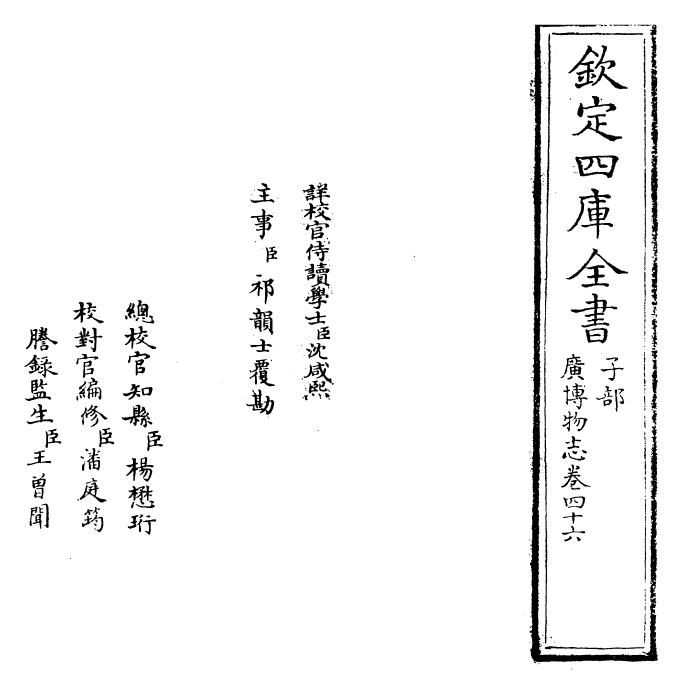 欽定四庫全書
子部
廣博物志卷四十六
詳校官侍讀學士臣沈咸熙
主事臣祁韻士覆勘
總校官知縣臣楊懋珩
校對官編修臣潘庭筠
謄錄監生臣王曾聞